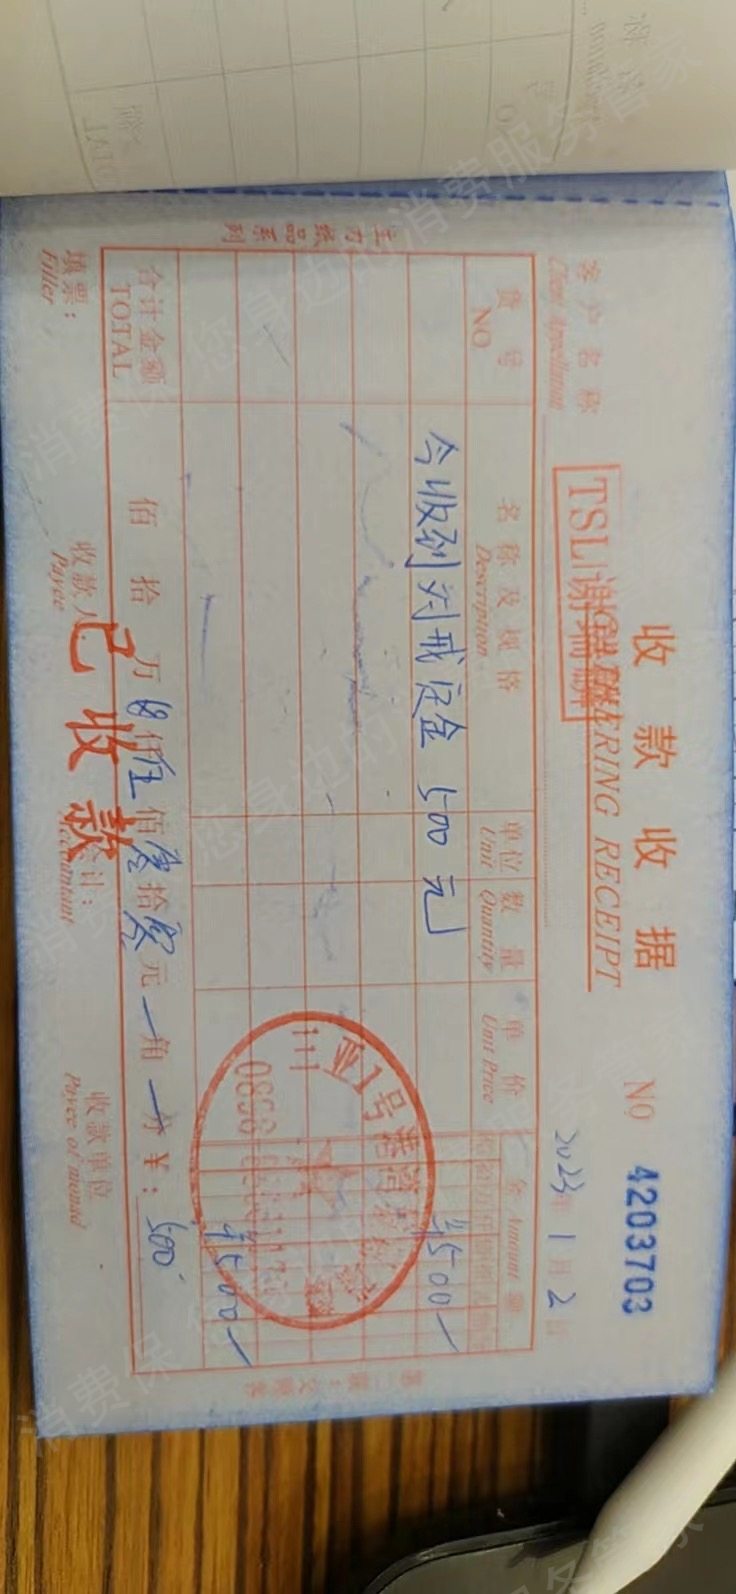 收款收据
GATHERING RECEIPT
NO 4203703
TSL|谢瑞麟
客户名称
Client Appellation
2023年1月2日
货号
NO
名称及规格
Description
单位
Unit
数量
Quantity
单价
Unit Price
金额
Amount
今收到对戒定金500元
¥500
¥500
合计金额
TOTAL
佰拾万仟伍佰零拾零元角分¥:500
填票:
Filler
收款人
Payee
会计:
Accountant
收款单位
已收款
工力纸品系列
消费保 您身边的消费服务管家